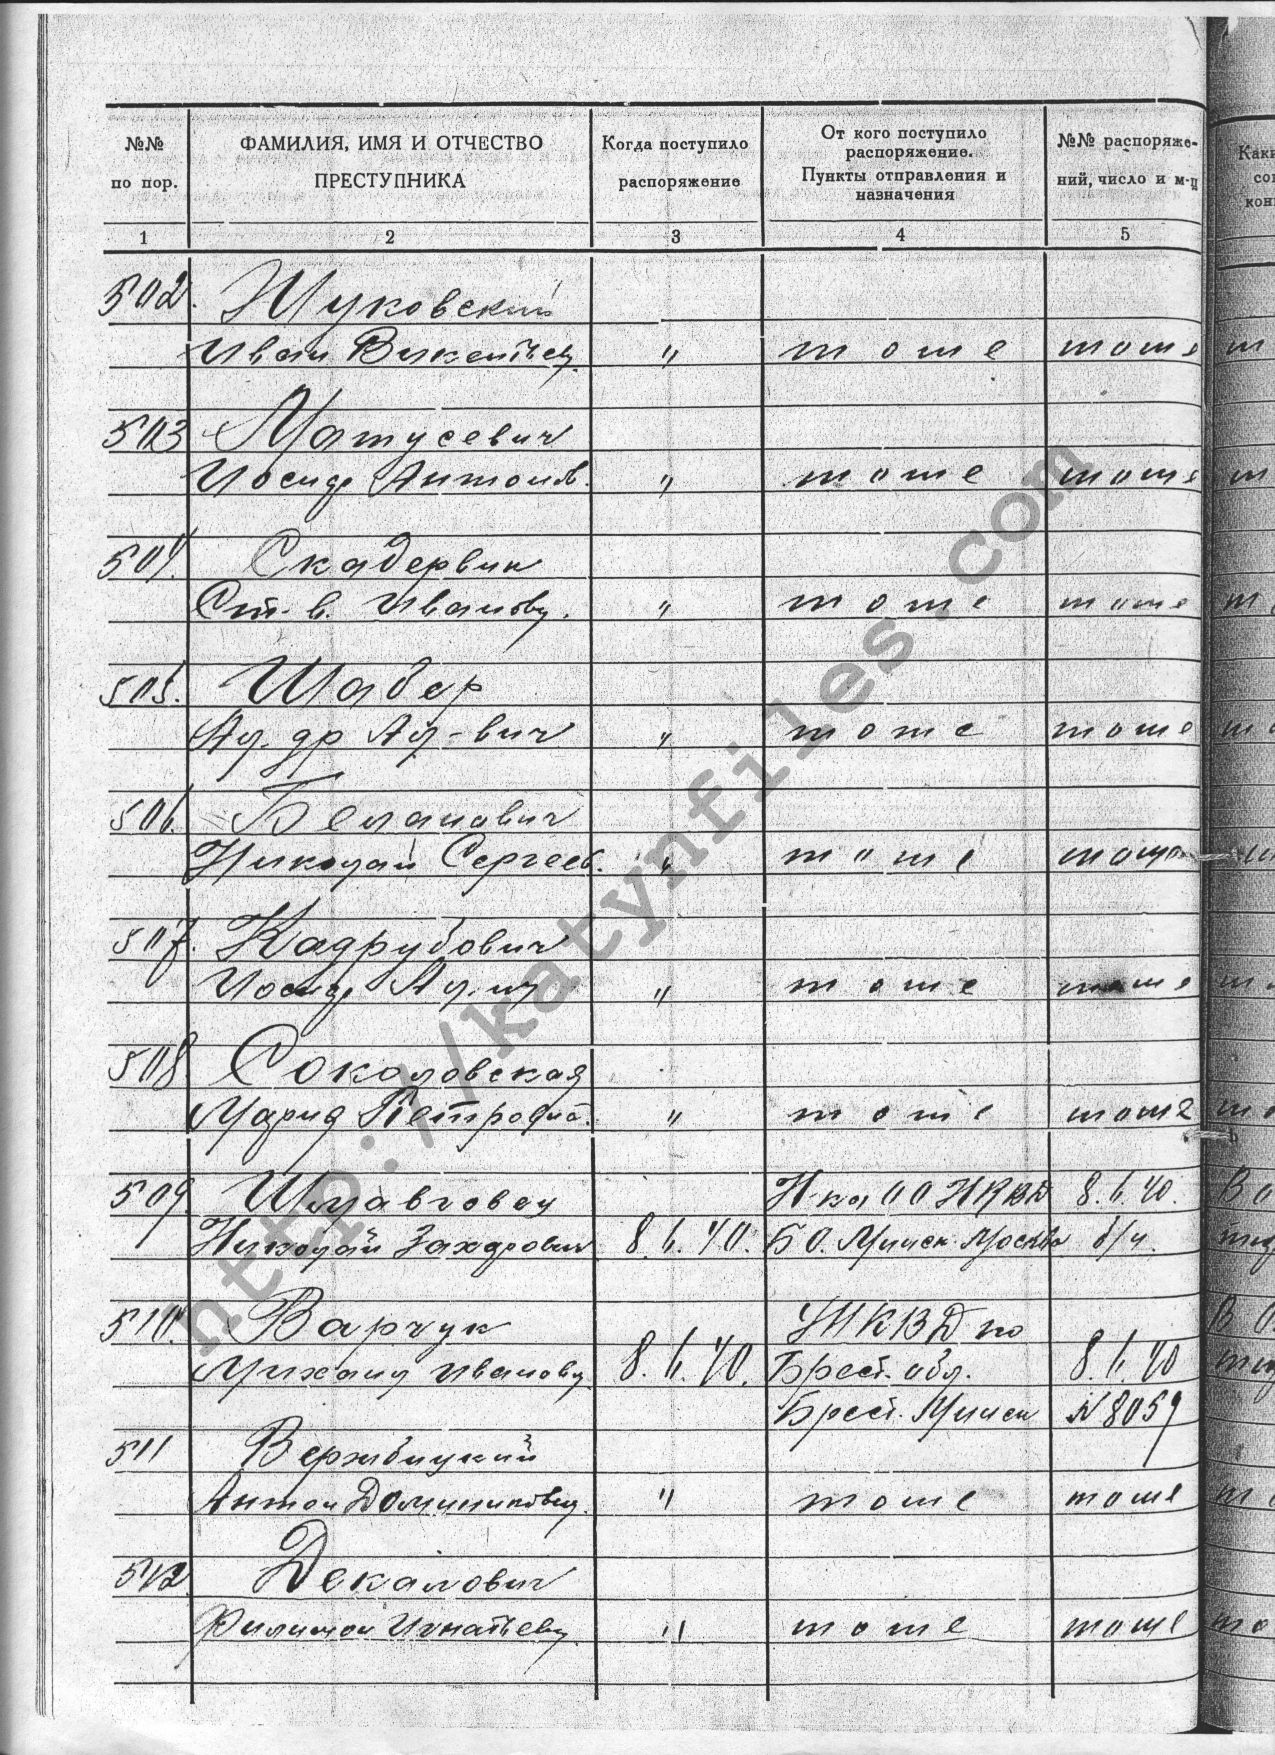 №№ по пор.
ФАМИЛИЯ, ИМЯ И ОТЧЕСТВО ПРЕСТУПНИКА
Когда поступило распоряжение
От кого поступило распоряжение. Пункты отправления и назначения
№№ распоряжений, число и м-ц
1 2 3 4 5
502. Жуковский
Иван Викентьев. " тоже тоже
503 Матусевич
Иосиф Антонов. " тоже тоже
504. Скадервик
Ст-в. Иванов. " тоже тоже
505. Шабер
Ал-др Ал-вич " тоже тоже
506. Беланович
Николай Сергеев. " тоже тоже
507. Кадрубович
Иосиф " тоже тоже
508 Соколовская
Мария Петровна. " тоже тоже
509. Шлавговец Н-ка ОО НКВД 8.6.40.
Николай Захарович 8.6.40. БО. Минск-Москва б/н.
510. Варчук УНКВД по
Михаил Иванов. 8.6.40. Брест. обл. 8.6.40
Брест. Минск №8059
511 Вержбицкий
Антон Домиников. " тоже тоже
512 Декалович
Филимон Игнатьев. " тоже тоже
http://katynfiles.com